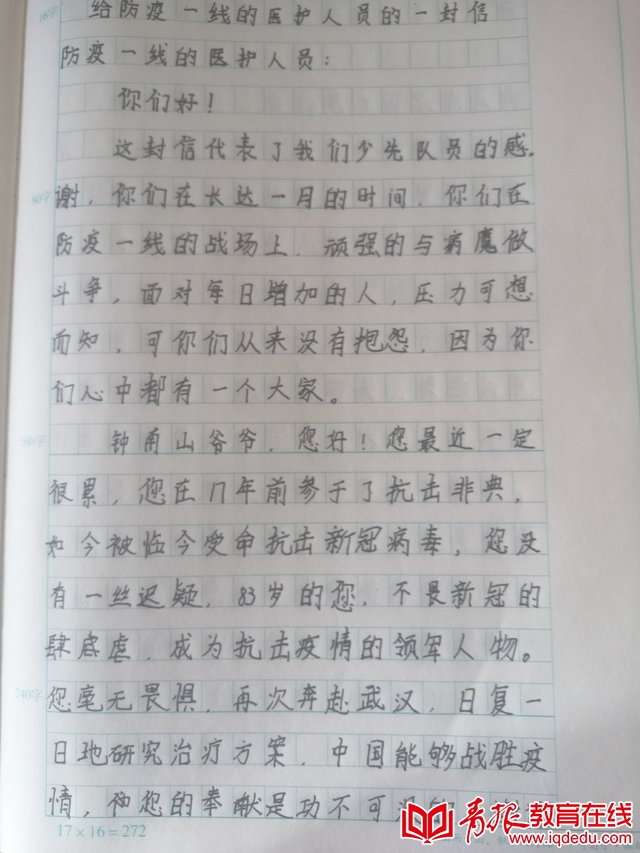 给防疫一线的医护人员的一封信
防疫一线的医护人员：
你们好！
这封信代表了我们少先队员的感
80字
谢，你们在长达一月的时间，你们在
防疫一线的战场上，顽强的与病魔做
斗争，面对每日增加的人，压力可想
而知，可你们从来没有抱怨，因为你
们心中都有一个大家。
160字
钟南山爷爷，您好！您最近一定
很累，您在17年前参于了抗击非典，
如今被临今受命抗击新冠病毒，您没
有一丝迟疑，83岁的您，不畏新冠的
肆虐，成为抗击疫情的领军人物。
240字
您毫无畏惧，再次奔赴武汉，日复一
日地研究治疗方案，中国能够战胜疫
情，和您的奉献是功不可没
17×16=272
青报教育在线
www.iqdedu.com